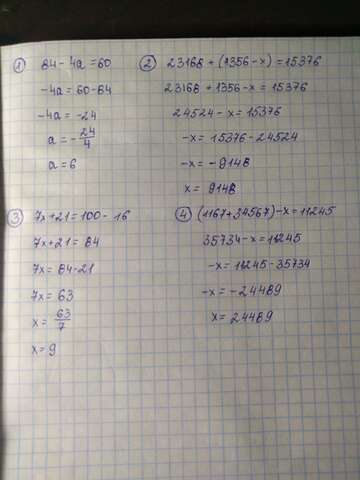 ① 84 - 4a = 60
-4a = 60-84
-4a = -24
a = - 24/4
a = 6
② 23168 + (1356 - x) = 15376
23168 + 1356 - x = 15376
24524 - x = 15376
-x = 15376 - 24524
-x = -9148
x = 9148
③ 7x + 21 = 100 - 16
7x + 21 = 84
7x = 84 - 21
7x = 63
x = 63/7
x = 9
④ (1167 + 34567) - x = 11245
35734 - x = 11245
-x = 11245 - 35734
-x = -24489
x = 24489